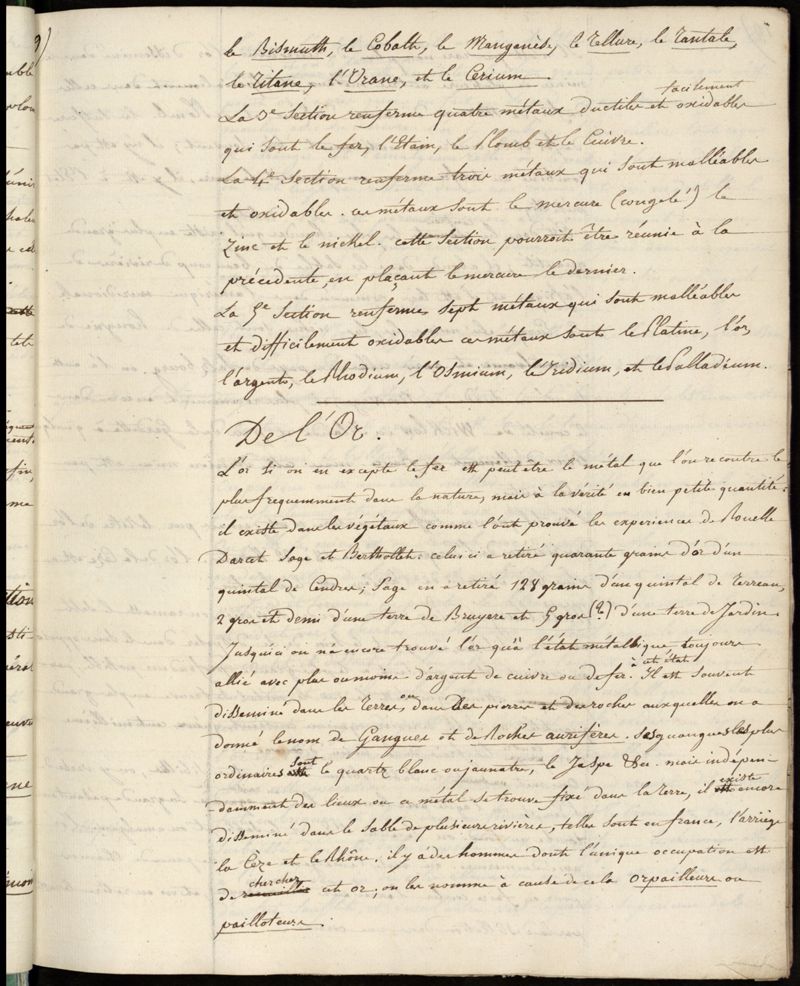 le Bismuth, le Cobalt, le Manganèse, le Tellure, le Tantale,
le Titane, l'Urane, et le Cerium.
La 3e Section renferme quatre métaux ductiles et facilement oxidables
qui sont le fer, l'Etain, le Plomb et le Cuivre.
La 4e Section renferme trois métaux qui sont malléables
et oxidables. ces métaux sont le mercure (congelé) le
Zinc et le nickel. cette Section pourroit être réunie à la
précedente, en plaçant le mercure le dernier.
La 5e Section renferme sept métaux qui sont malléables
et difficilement oxidables ces métaux sont le Platine, l'or,
l'argent, le Rhodium, l'Osmium, le Iridium, et le Palladium.
De l'Or.
L'or si on en excepte le fer est peut être le métal que l'on recontre le
plus frequemment dans la nature, mais à la vérité en bien petite quantité:
il existe dans les végétaux comme l'ont prouvé les experiences de Rouelle
Darcet Sage et Berthollet: celui ci a retiré quarante grains d'or d'un
quintal de Cendres; Sage en a retiré 128 grains d'un quintal de Terreau,
2 gros et demi d'une terre de Bruyere et 5 gros (?) d'une terre de Jardin.
Jusqu'ici on n'a encore trouvé l'or qu'à l'état métallique, toujours
allié avec plus ou moins d'argent de cuivre ou de fer. Il est à cet état souvent
disseminé dans les Terres, ou dans des pierres et des roches auxquelles on a
donné le nom de Gangues et de Roches aurifères. Ses guangues les plus
ordinaires sont le quartz blanc ou jaunatre, le Jaspe &a. mais indépen-
damment des lieux ou ce métal se trouve fixé dans la terre, il existe encore
disseminé dans le sable de plusieurs rivières, telles sont en france, l'arriège
la Cèze et le Rhône. il y a des hommes dont l'unique occupation est
de chercher cet or; on les nomme à cause de cela Orpailleurs ou
pailloteurs.